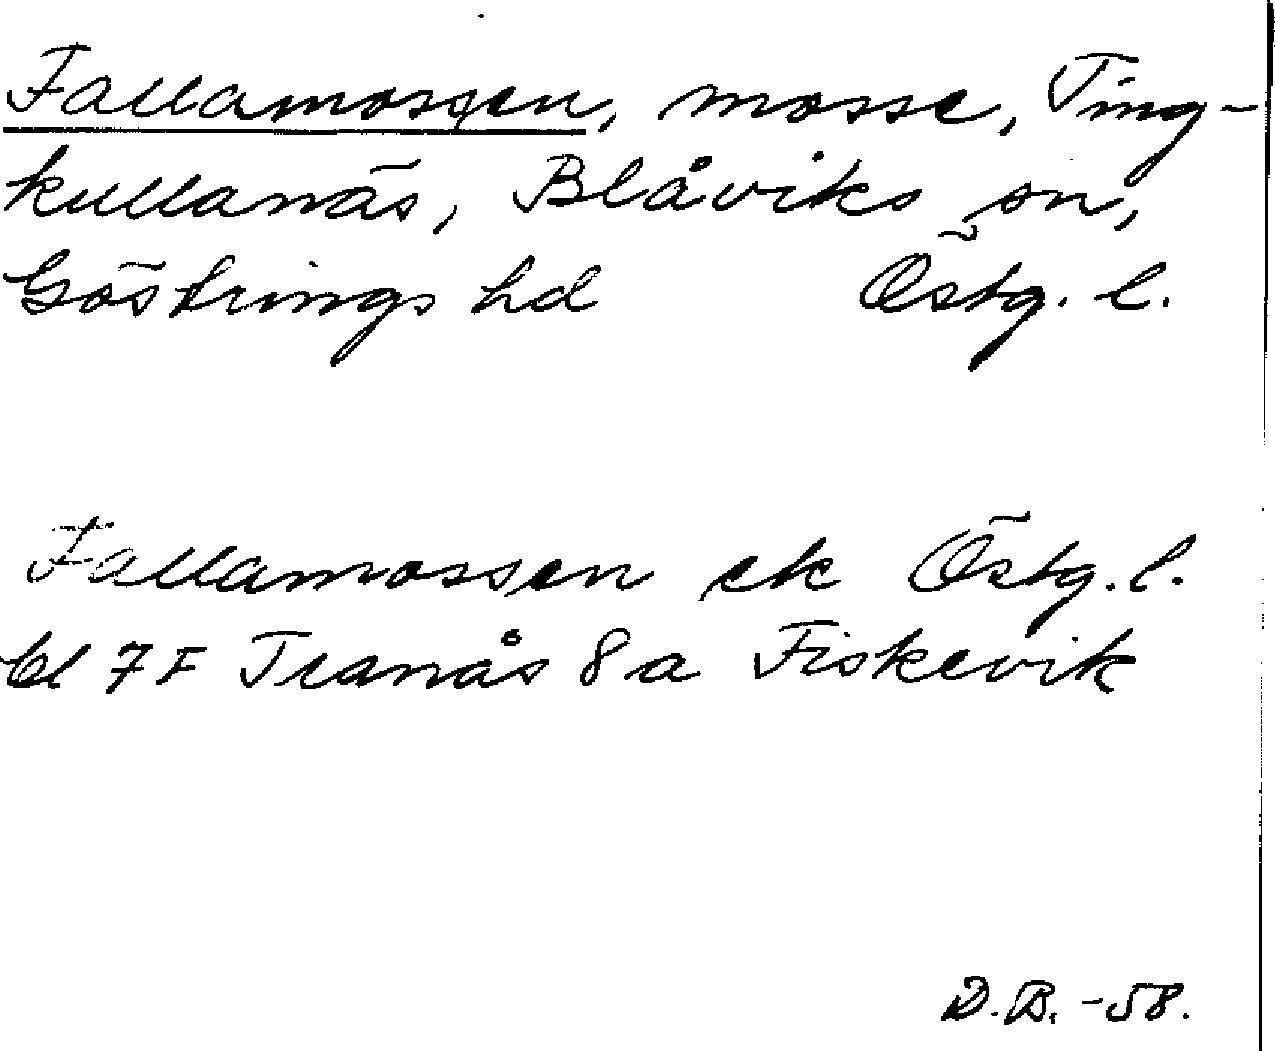 Fallamossen, mosse, Ting-
kullanäs, Blåviks sn,
Göstrings hd Östg. l.
Fallamossen ek Östg. l.
bl 7 F Tranås 8 a Fiskevik
D.B. -58.